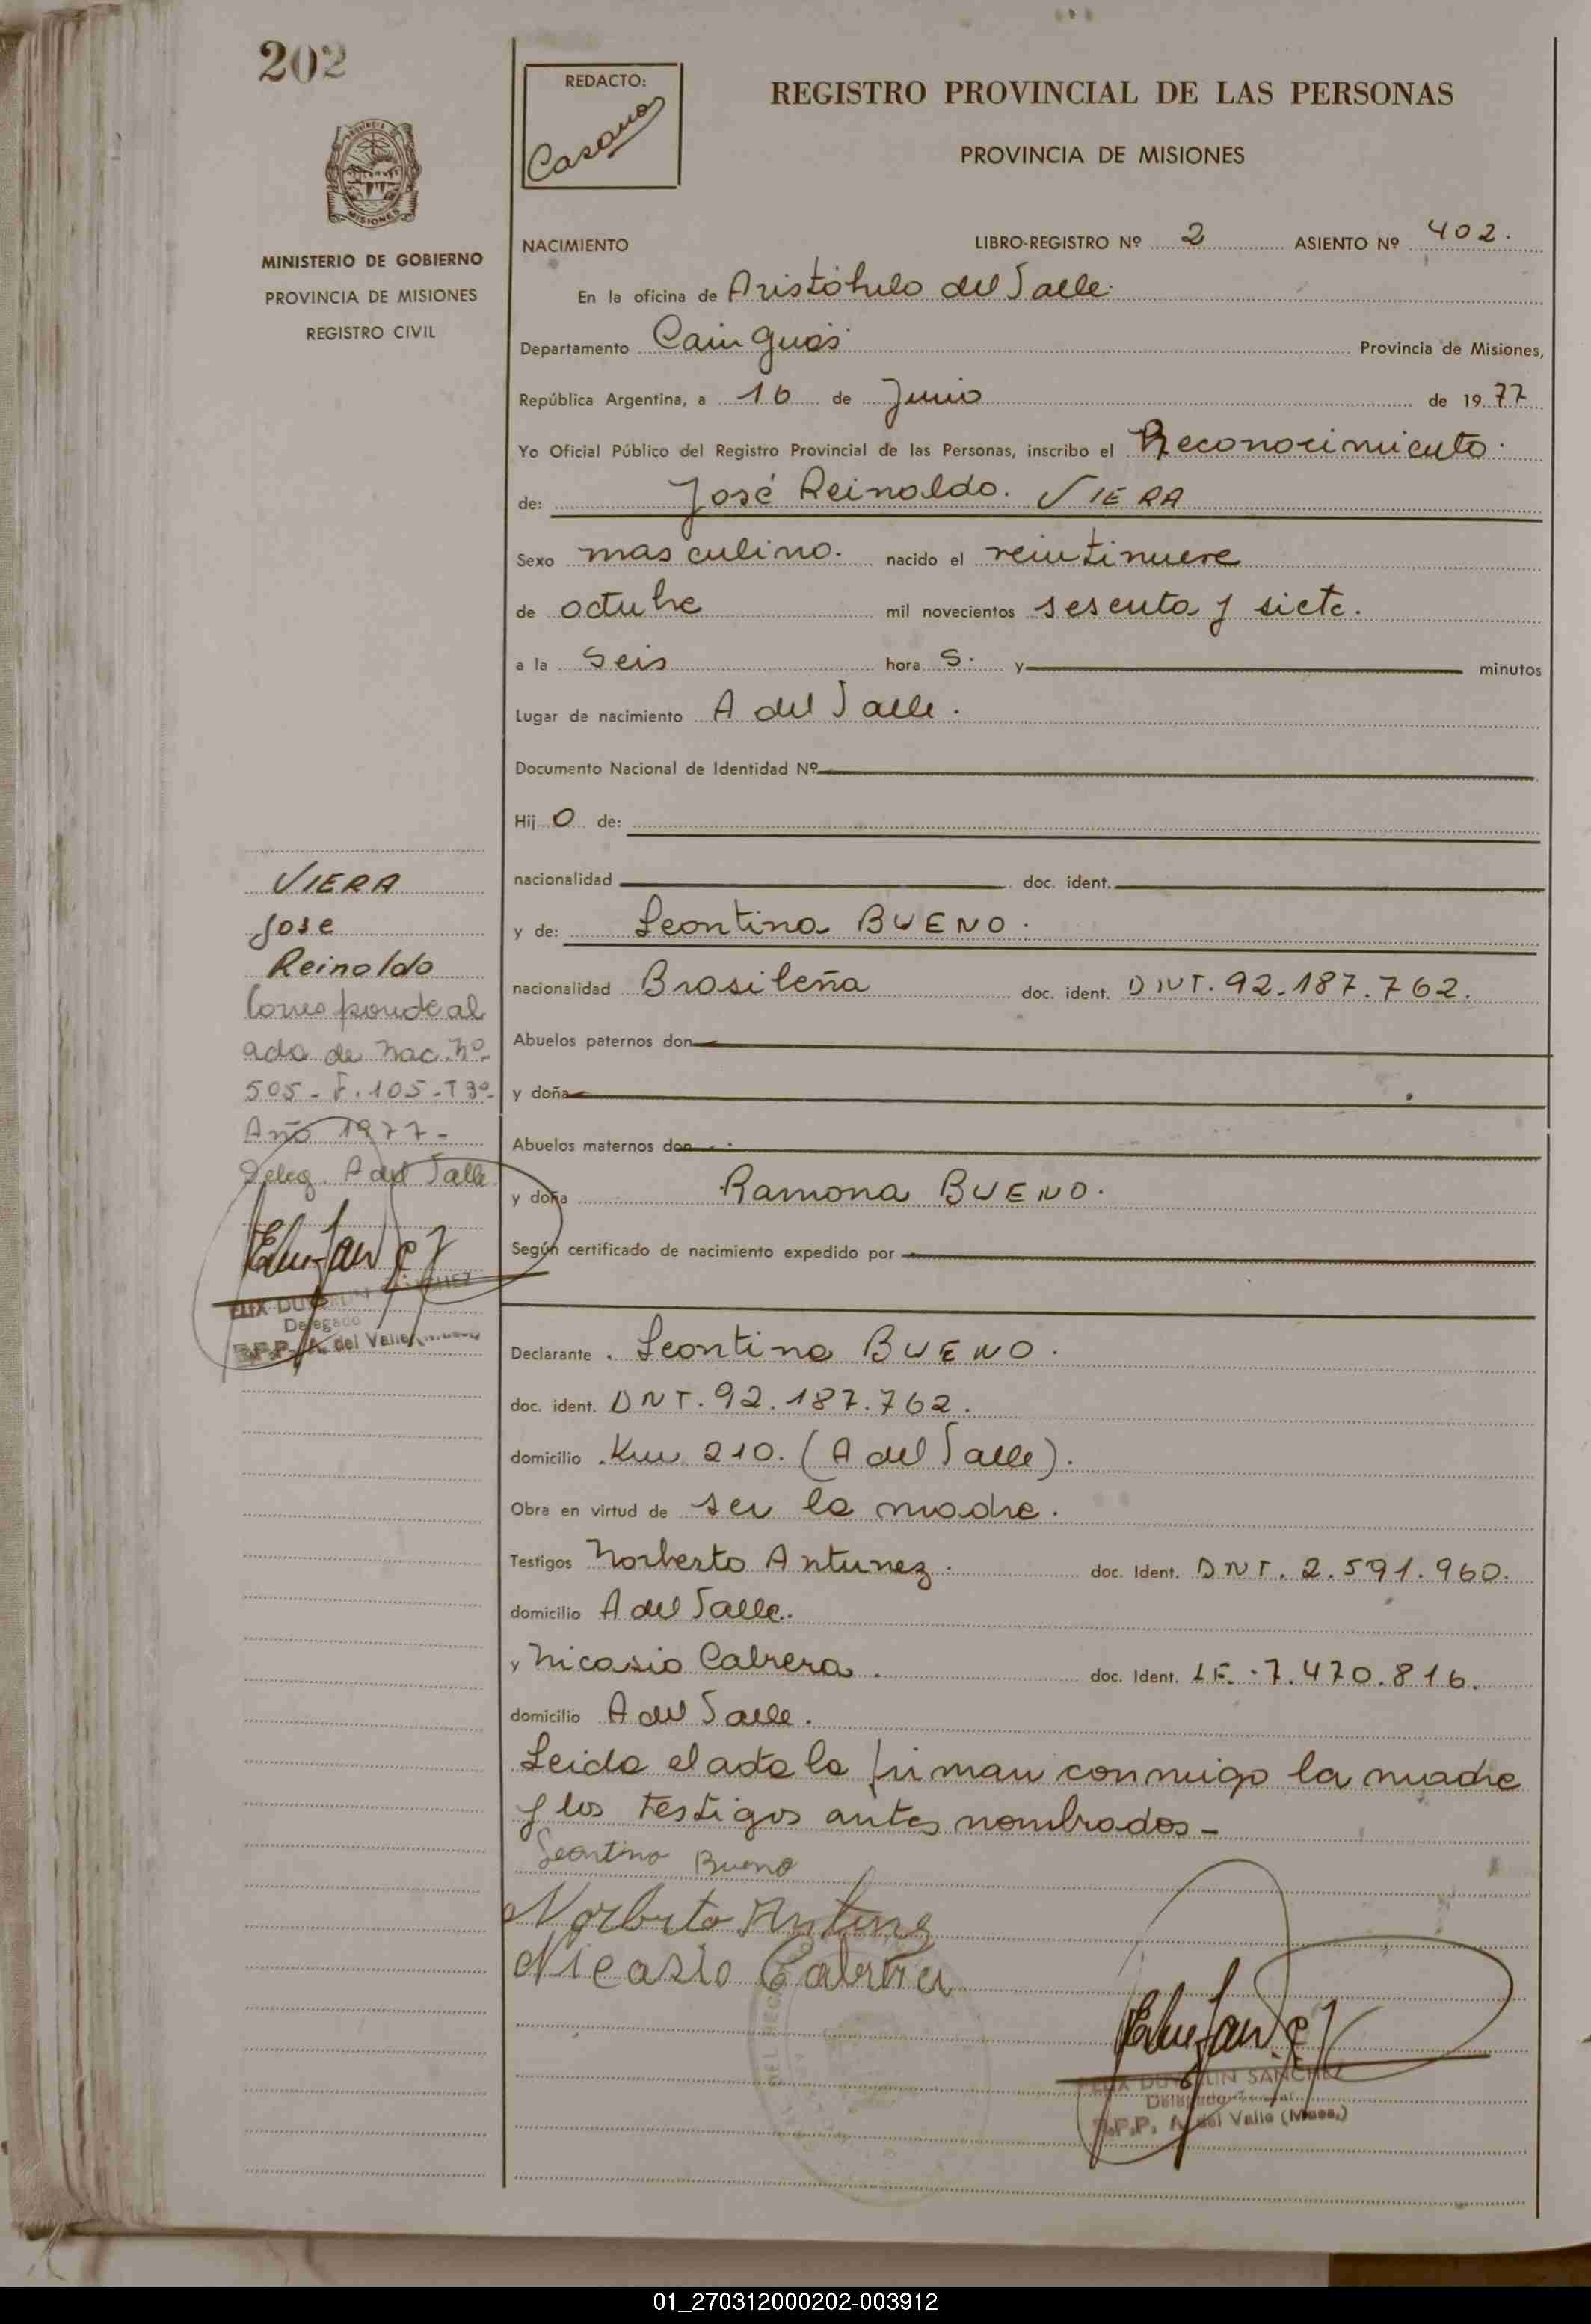 202
REDACTO:
Casano
REGISTRO PROVINCIAL DE LAS PERSONAS
PROVINCIA DE MISIONES
MISIONES
MINISTERIO DE GOBIERNO
PROVINCIA DE MISIONES
REGISTRO CIVIL
NACIMIENTO LIBRO-REGISTRO Nº 2 ASIENTO Nº 402.
En la oficina de Aristóbulo del Valle.
Departamento Cainguás Provincia de Misiones,
República Argentina, a 16 de Junio de 1977
Yo Oficial Público del Registro Provincial de las Personas, inscribo el Reconocimiento.
de: José Reinaldo. VIERA
Sexo masculino. nacido el veintinueve
de octubre mil novecientos sesenta y siete.
a la Seis hora s. y minutos
Lugar de nacimiento A del Valle.
Documento Nacional de Identidad Nº
Hij o de:
nacionalidad doc. ident.
y de: Leontina BUENO.
nacionalidad Brasileña doc. ident. DNT. 92.187.762.
Abuelos paternos don
y doña
Abuelos maternos don
y doña Ramona BUENO.
Según certificado de nacimiento expedido por
VIERA
Jose
Reinaldo
Corresponde al
acta de Nac. Nº
505 - F. 105 - T 3º
Año 1977 -
Deleg. A del Valle
Delegado
R.P.P. A. del Valle
Declarante. Leontina BUENO.
doc. ident. DNT. 92.187.762.
domicilio. Km 210. (A del Valle).
Obra en virtud de ser la madre.
Testigos Norberto Antunez. doc. Ident. DNT. 2.591.960.
domicilio A del Valle.
y Nicasio Cabrera. doc. Ident. LE. 7.470.816.
domicilio A del Valle.
Leida el acta la firman conmigo la madre
y los testigos antes nombrados -
Leontina Bueno
Norberto Antunez
Nicasio Cabrera
SANCHEZ
R.P.P. A. del Valle (Mnes.)
01_270312000202-003912